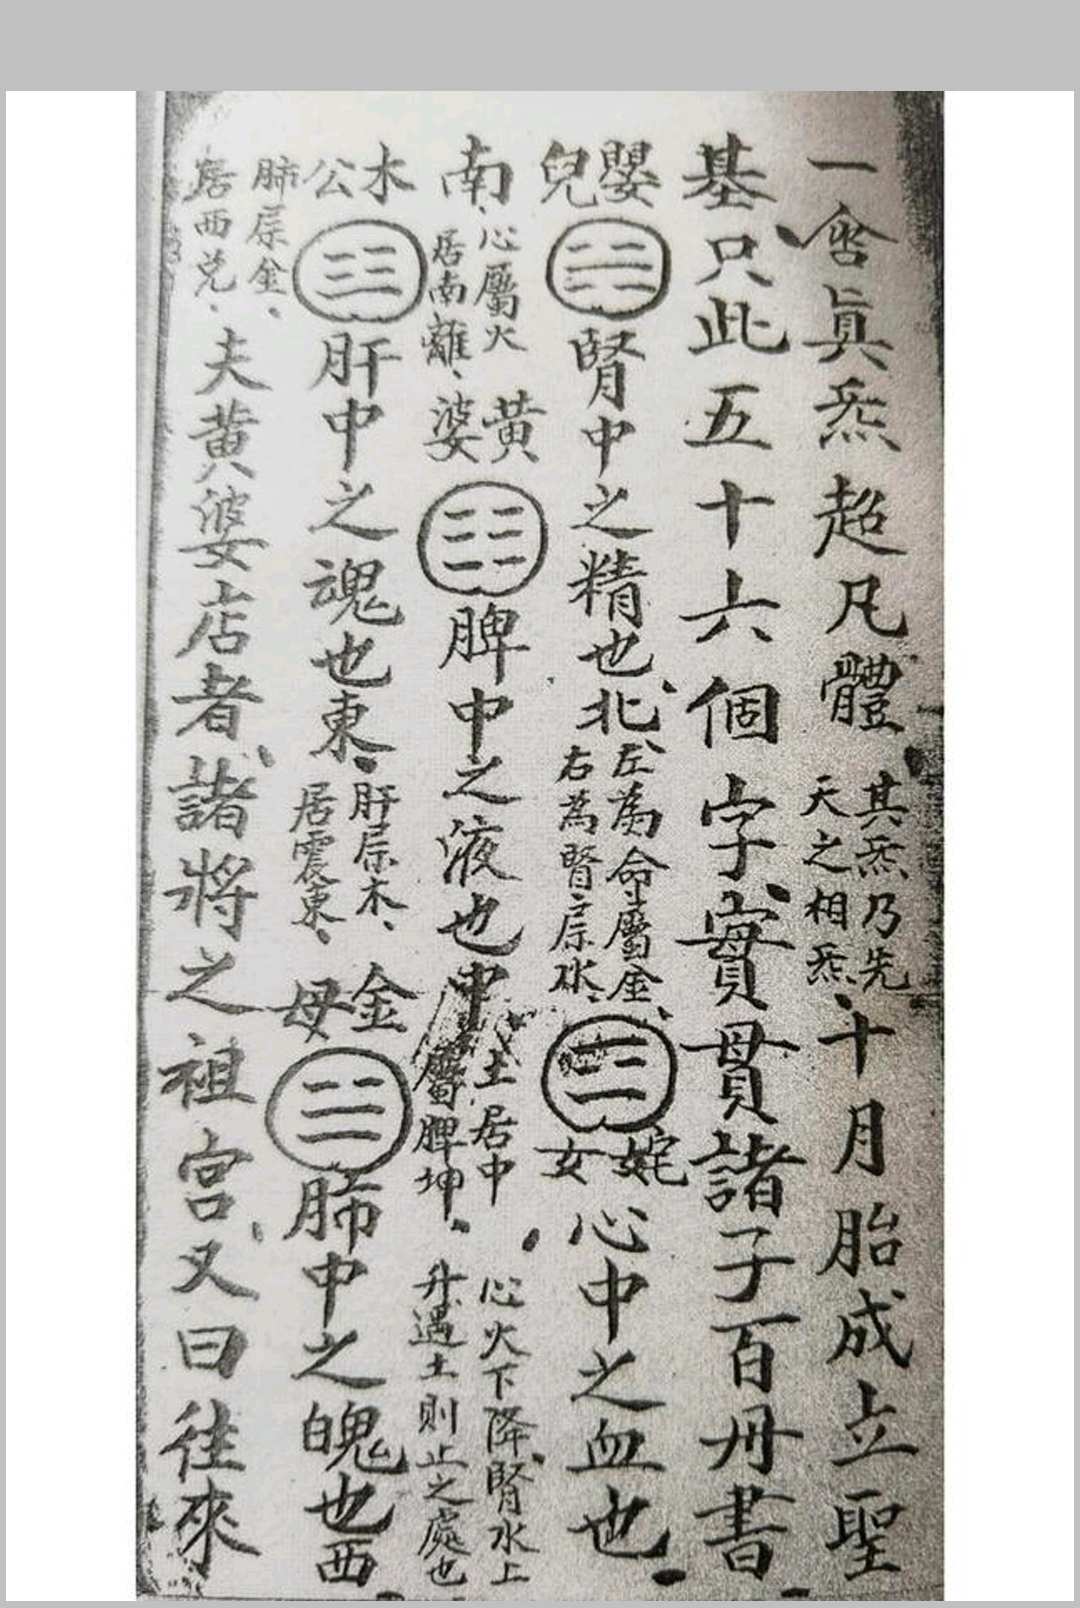 一含眞炁超凡體其炁乃先天之相炁十月胎成立聖
基只此五十六個字實貫諸子百丹書
嬰兒腎中之精也北左為命屬金右為腎屬水姹女心中之血也
南心屬火居南離黄婆脾中之液也中土居中屬脾坤心火下降腎水上升遇土則止之處也
木公肝中之魂也東肝屬木居震東金母肺中之魄也西
肺屬金居西兑夫黄婆店者諸將之祖宫又曰往來